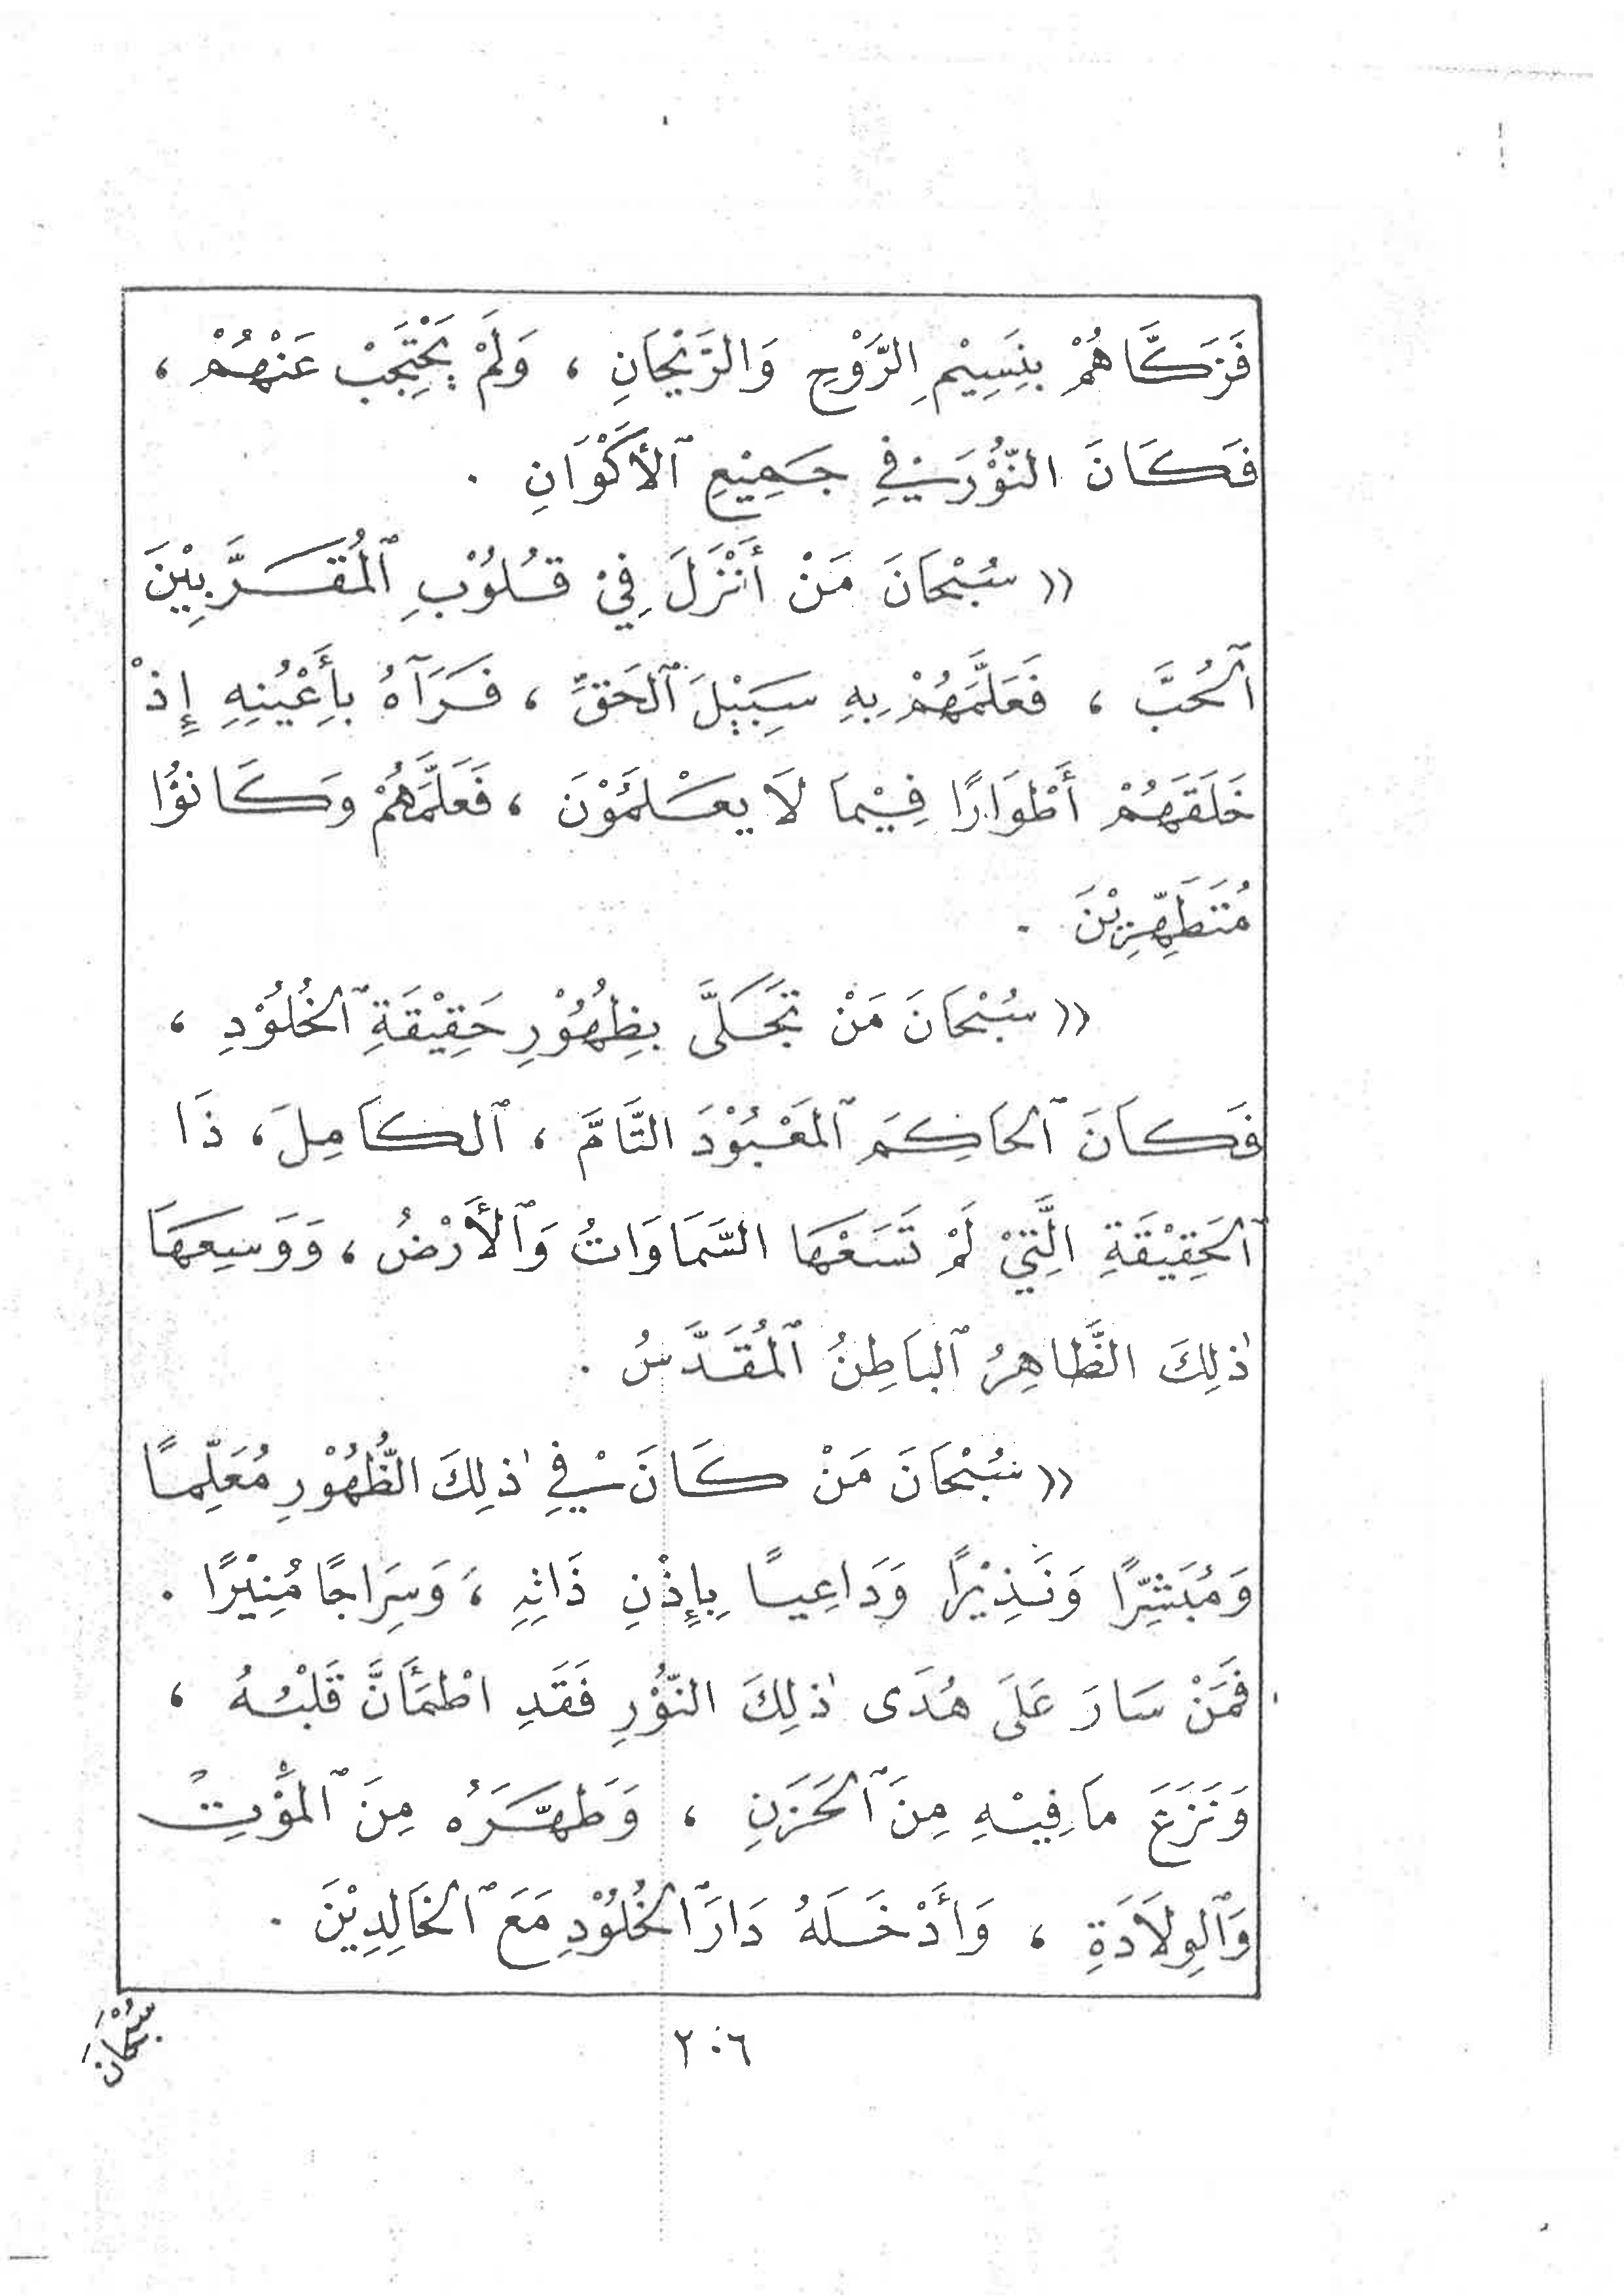 فَزَكَّاهُمْ بِنَسِيْمِ الرَّوْحِ وَالرَّيْحَانِ ، وَلَمْ يَحْتَجِبْ عَنْهُمْ ،
فَكَانَ النُّوْرَ فِيْ جَمِيْعِ ٱلأَكْوَانِ .
(( سُبْحَانَ مَنْ أَنْزَلَ فِيْ قُلُوْبِ ٱلمُقَرَّبِيْنَ
ٱلحُبَّ ، فَعَلَّمَهُمْ بِهِ سَبِيْلَ ٱلحَقِّ ، فَرَآهُ بِأَعْيُنِهِ إِذْ
خَلَقَهُمْ أَطْوَارًا فِيْمَا لَا يَعْلَمُوْنَ ، فَعَلَّمَهُمْ وَكَانُوْا
مُتَطَهِّرِيْنَ .
(( سُبْحَانَ مَنْ تَجَلَّى بِظُهُوْرِ حَقِيْقَةِ ٱلخُلُوْدِ ،
فَكَانَ ٱلحَاكِمَ ٱلمَعْبُوْدَ التَّامَّ ، ٱلكَامِلَ ، ذَا
ٱلحَقِيْقَةِ الَّتِيْ لَمْ تَسَعْهَا السَّمَاوَاتُ وَٱلأَرْضُ ، وَوَسِعَهَا
ذٰلِكَ الظَّاهِرُ ٱلبَاطِنُ ٱلمُقَدَّسُ .
(( سُبْحَانَ مَنْ كَانَ فِيْ ذٰلِكَ الظُّهُوْرِ مُعَلِّمًا
وَمُبَشِّرًا وَنَذِيْرًا وَدَاعِيًا بِإِذْنِ ذَاتِهِ ، وَسِرَاجًا مُنِيْرًا .
فَمَنْ سَارَ عَلَى هُدَى ذٰلِكَ النُّوْرِ فَقَدِ اطْمَأَنَّ قَلْبُهُ ،
وَنَزَعَ مَا فِيْهِ مِنَ ٱلحَزَنِ ، وَطَهَّرَهُ مِنَ ٱلمَوْتِ
وَٱلوِلَادَةِ ، وَأَدْخَلَهُ دَارَ ٱلخُلُوْدِ مَعَ ٱلخَالِدِيْنَ .
٢٠٦
سُبْحَانَ